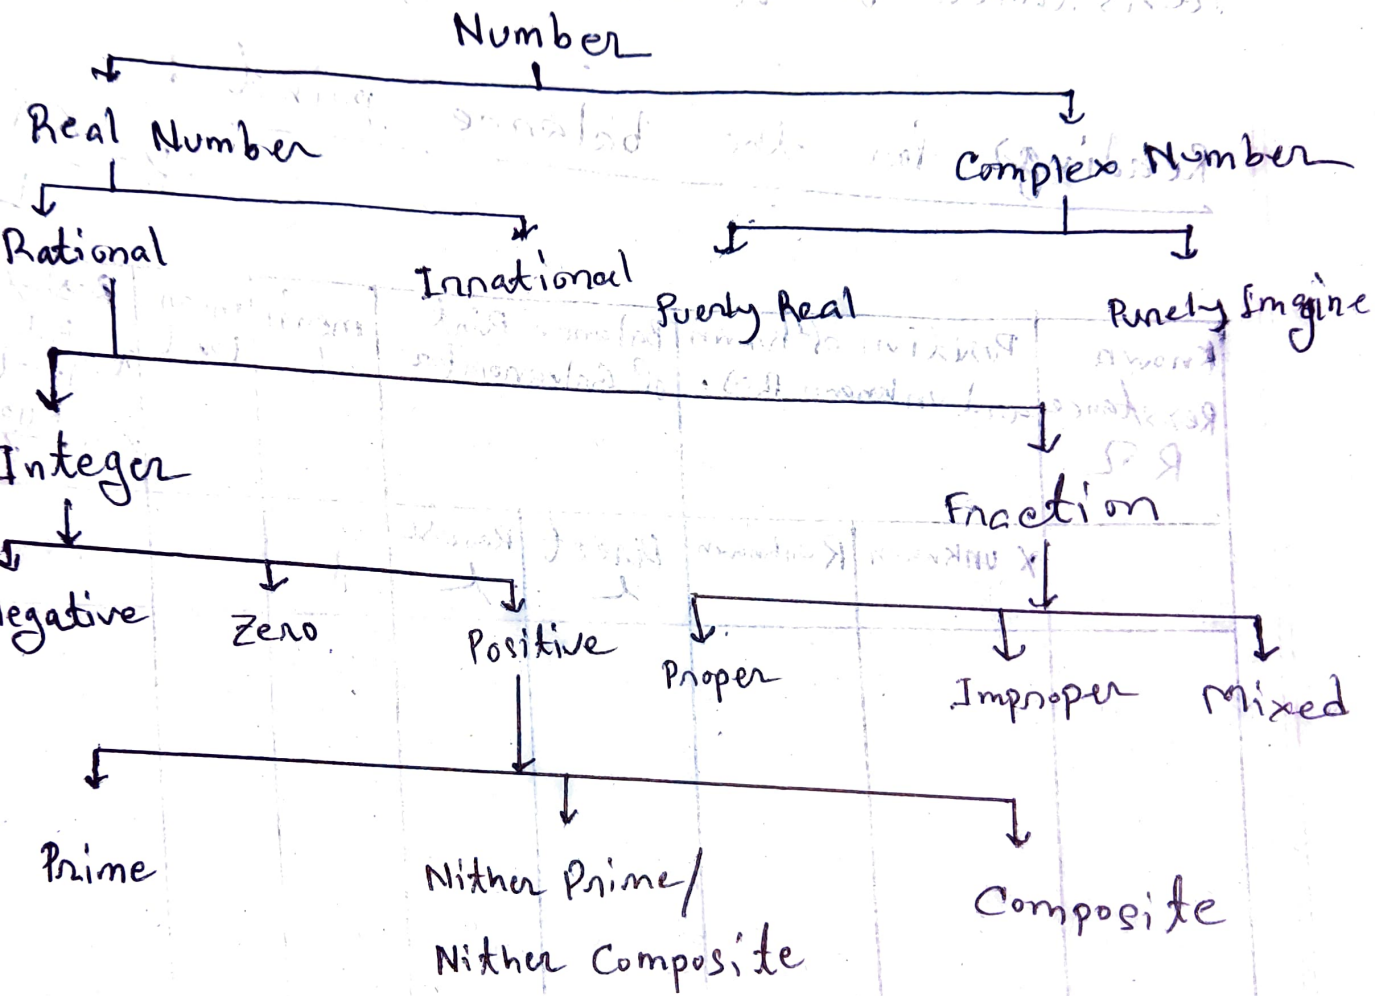 Number
Real Number
Complex Number
Rational
Irrational
Puerly Real
Purely Imagine
Integer
Fraction
egative
Zero
Positive
Proper
Improper
Mixed
Prime
Nither Prime/
Nither Composite
Composite